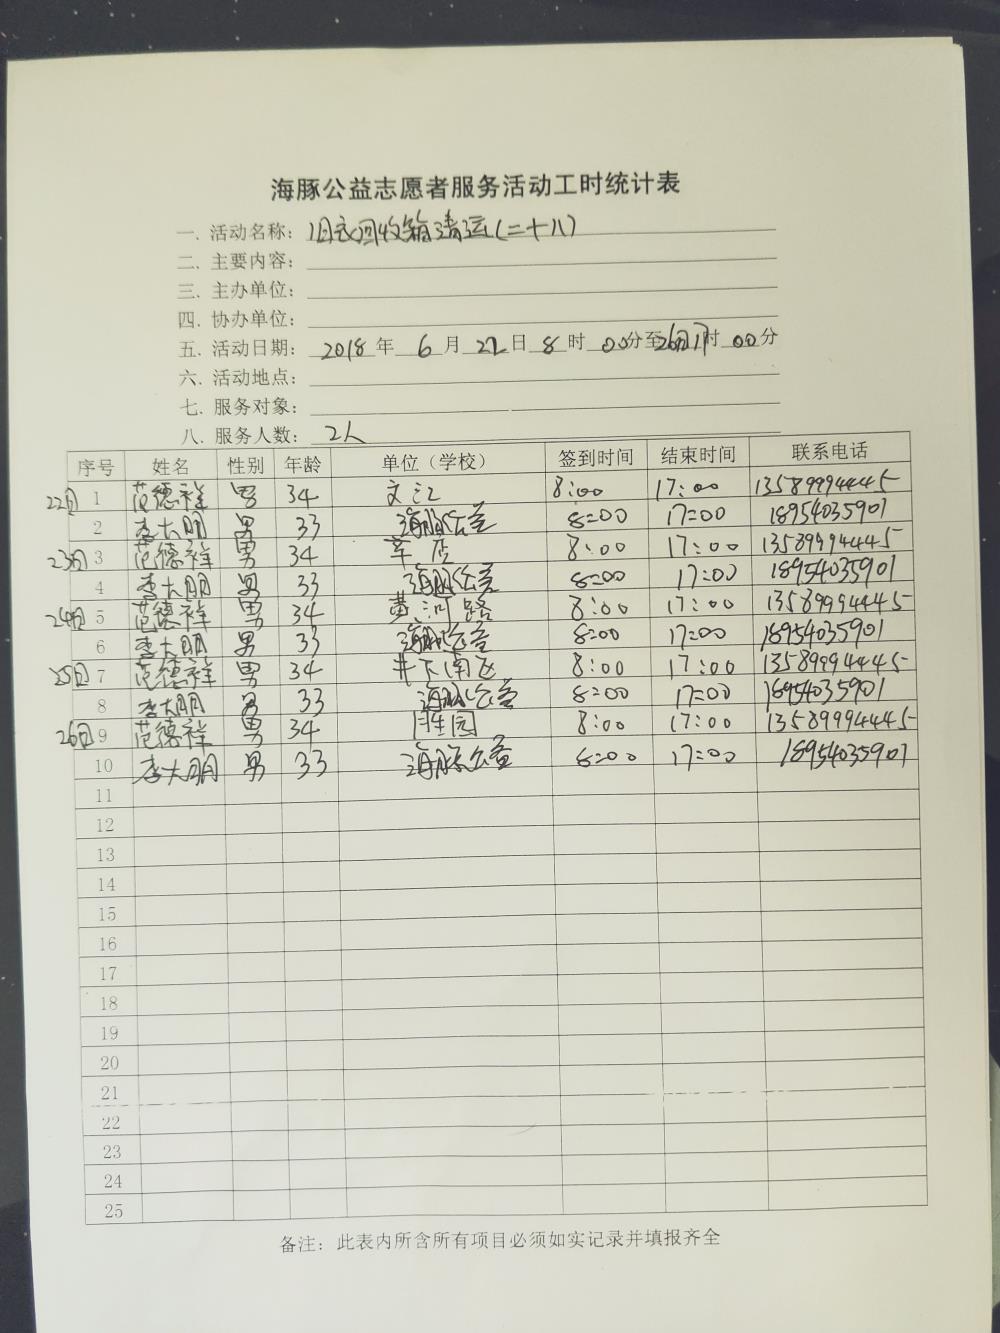 海豚公益志愿者服务活动工时统计表
一. 活动名称: 旧衣回收箱清运(二十八)
二. 主要内容:
三. 主办单位:
四. 协办单位:
五. 活动日期: 2018 年 6 月 22 日 8 时 00 分至 26日17时 00 分
六. 活动地点:
七. 服务对象:
八. 服务人数: 2人
序号 姓名 性别 年龄 单位（学校） 签到时间 结束时间 联系电话
22日 1 范德祥 男 34 文汇 8:00 17:00 13589994445
2 李大朋 男 33 海豚公益 8:00 17:00 18954035901
23日 3 范德祥 男 34 辛店 8:00 17:00 13589994445
4 李大朋 男 33 海豚公益 8:00 17:00 18954035901
24日 5 范德祥 男 34 黄河路 8:00 17:00 13589994445
6 李大朋 男 33 海豚公益 8:00 17:00 18954035901
25日 7 范德祥 男 34 井下南区 8:00 17:00 13589994445
8 李大朋 男 33 海豚公益 8:00 17:00 18954035901
26日 9 范德祥 男 34 8:00 17:00 13589994445
10 李大朋 男 33 海豚公益 8:00 17:00 18954035901
11
12
13
14
15
16
17
18
19
20
21
22
23
24
25
备注: 此表内所含所有项目必须如实记录并填报齐全